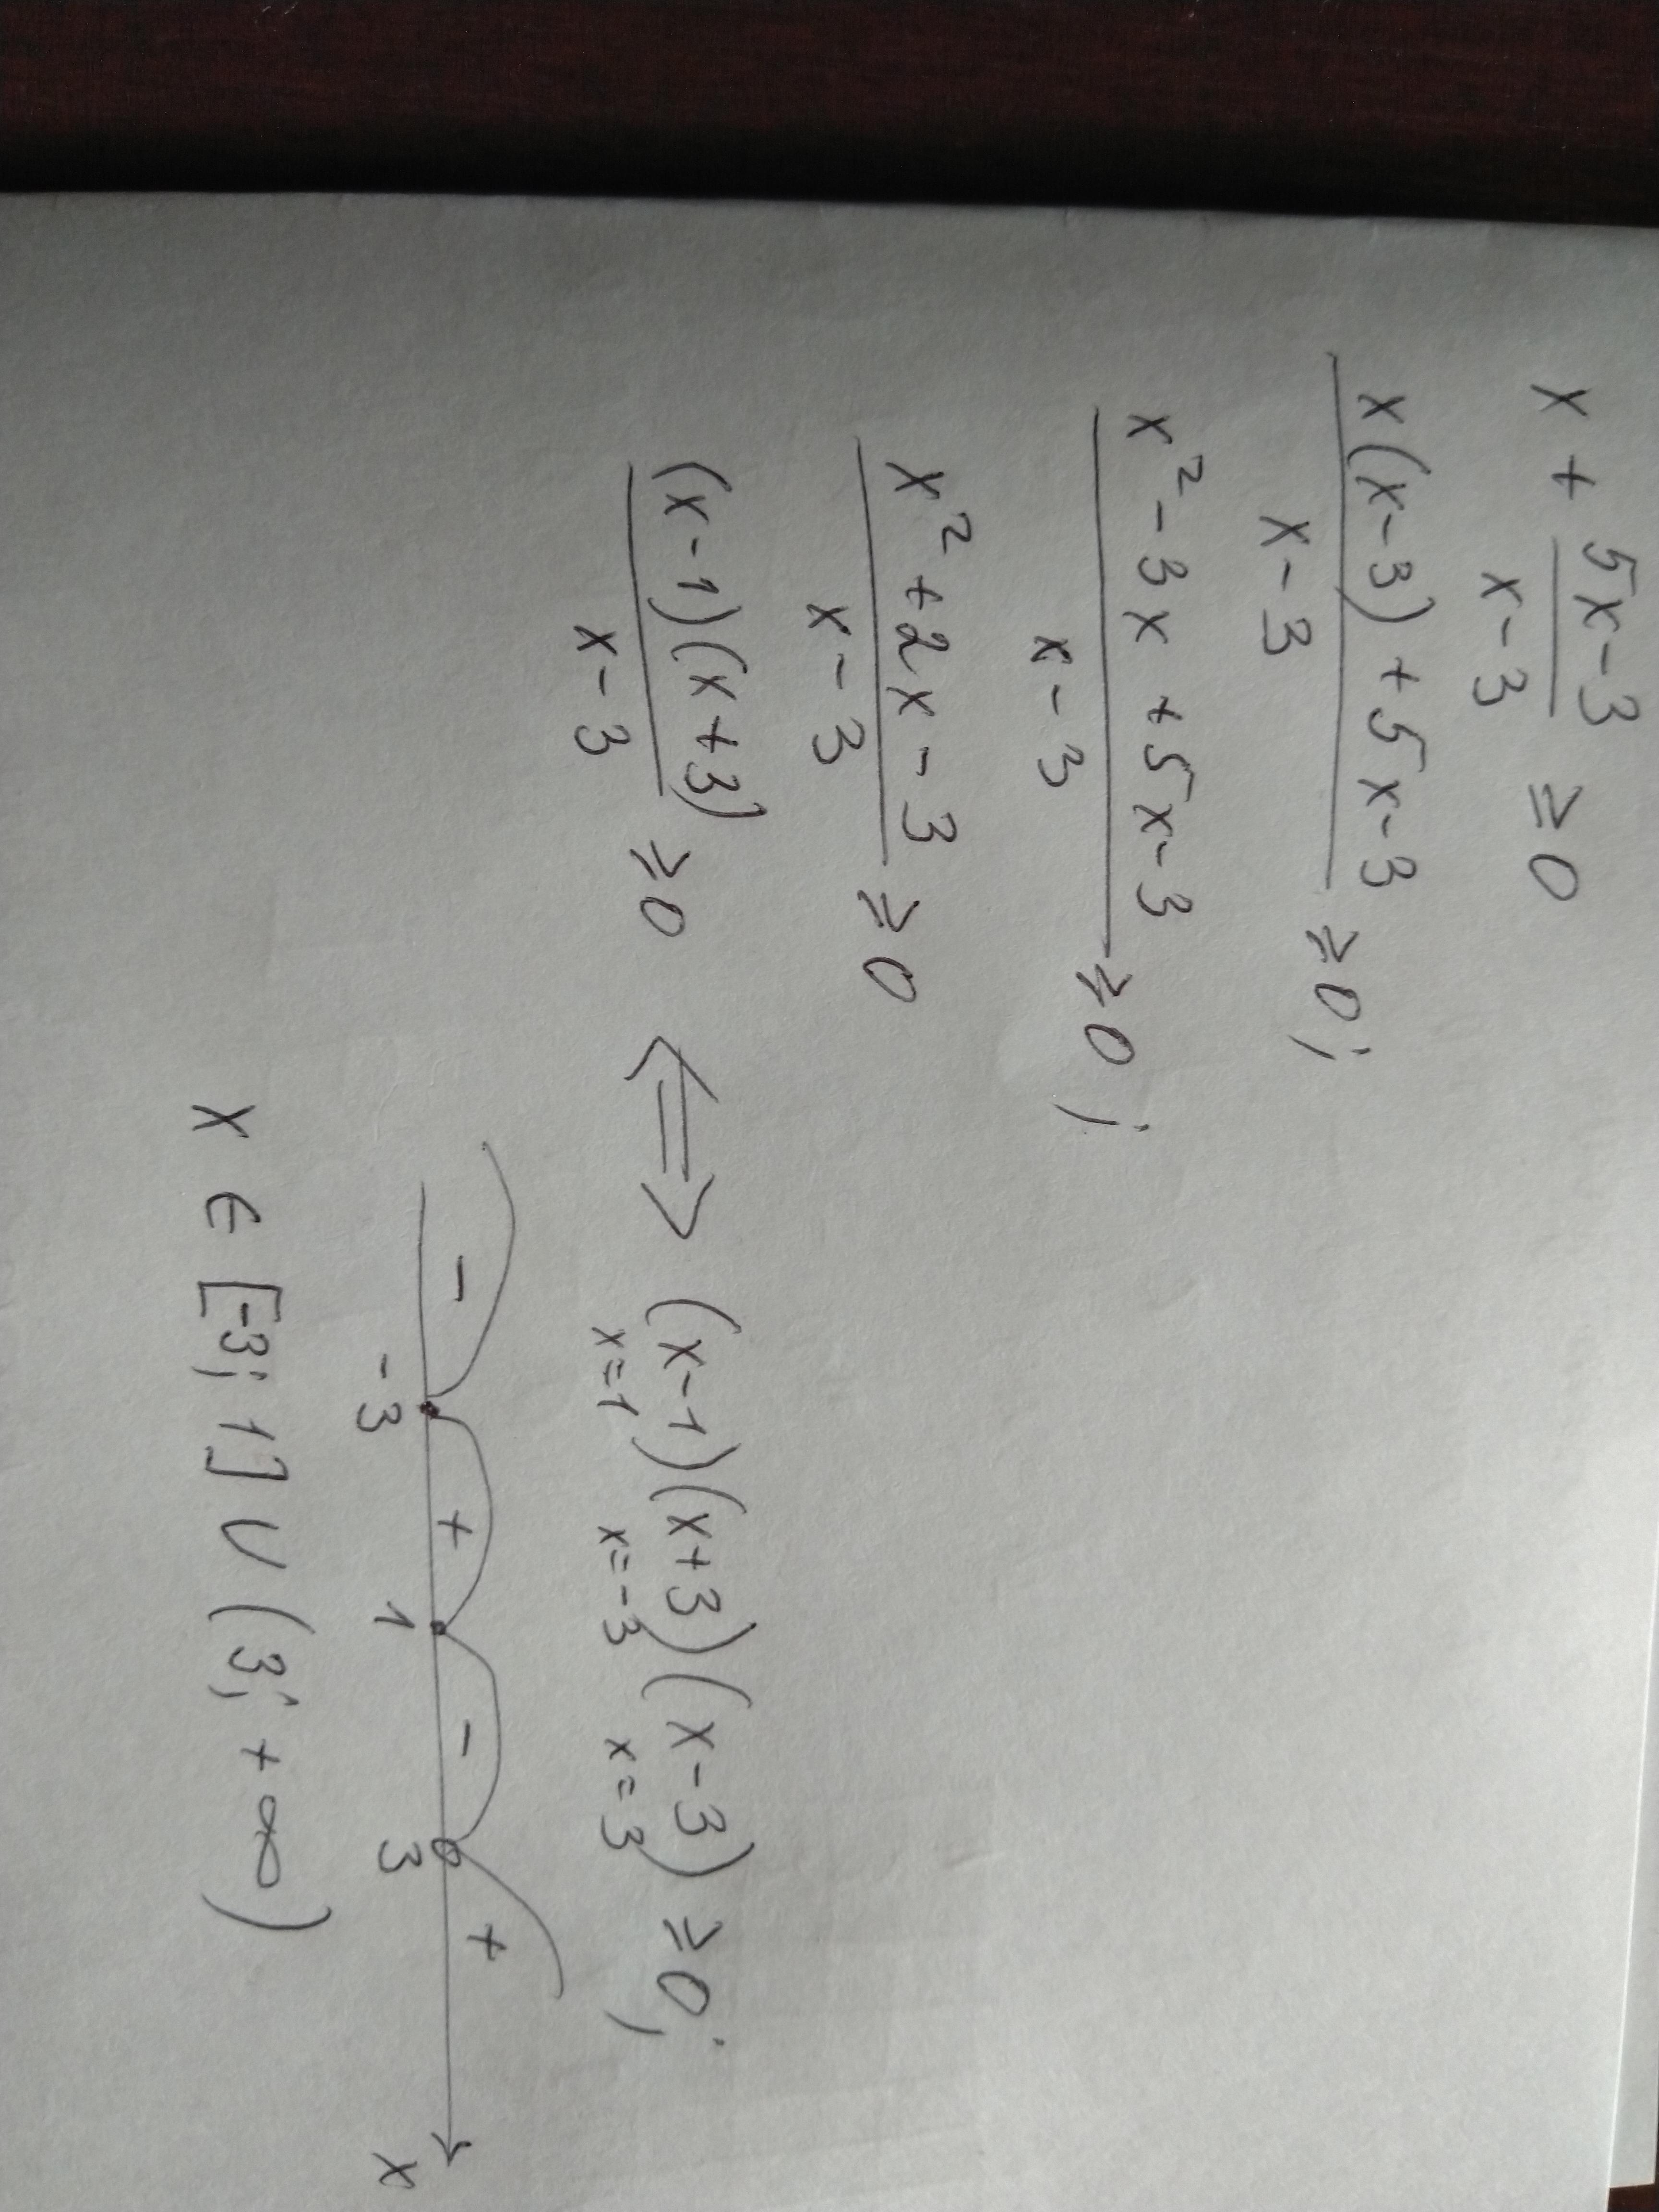 x + (5x-3)/(x-3) ≥ 0
(x(x-3)+5x-3)/(x-3) ≥ 0;
(x²-3x+5x-3)/(x-3) ≥ 0;
(x²+2x-3)/(x-3) ≥ 0
((x-1)(x+3))/(x-3) ≥ 0 <=> (x-1)(x+3)(x-3) ≥ 0;
x=1 x=-3 x=3
- + - +
-3 1 3 x
x ∈ [-3; 1] ∪ (3; +∞)